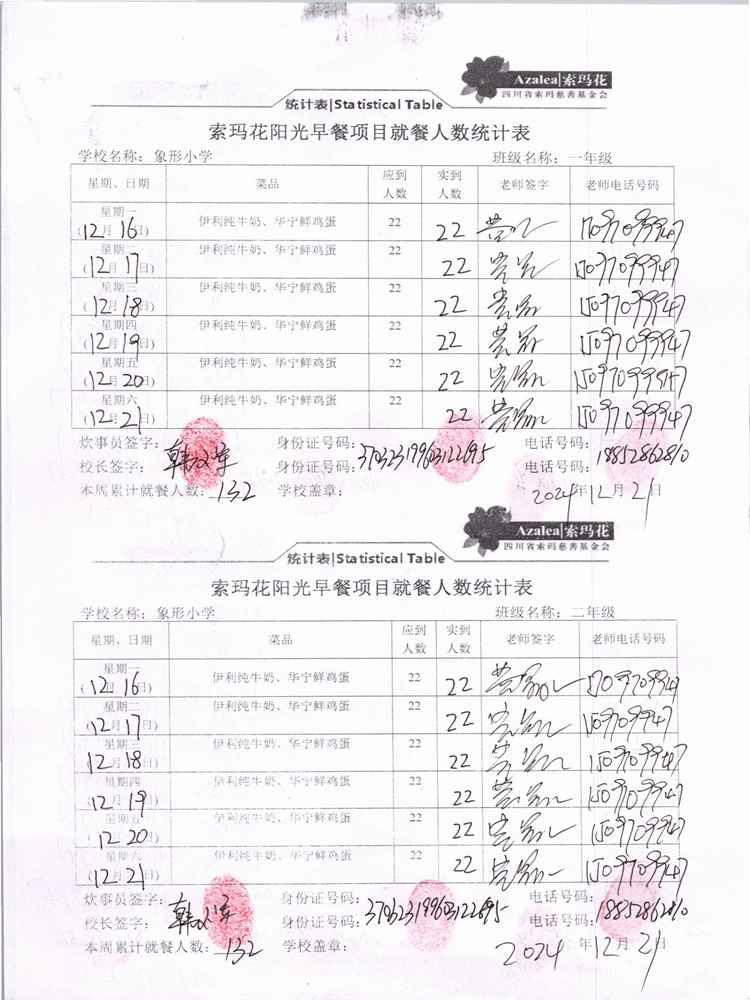 Azalea|索玛花
四川省索玛慈善基金会
统计表|Statistical Table
索玛花阳光早餐项目就餐人数统计表
学校名称：象形小学 班级名称：一年级
星期、日期 菜品 应到人数 实到人数 老师签字 老师电话号码
星期一 (12月16日) 伊利纯牛奶、华宁鲜鸡蛋 22 22
星期二 (12月17日) 伊利纯牛奶、华宁鲜鸡蛋 22 22
星期三 (12月18日) 伊利纯牛奶、华宁鲜鸡蛋 22 22
星期四 (12月19日) 伊利纯牛奶、华宁鲜鸡蛋 22 22
星期五 (12月20日) 伊利纯牛奶、华宁鲜鸡蛋 22 22
星期六 (12月21日) 伊利纯牛奶、华宁鲜鸡蛋 22 22
炊事员签字： 身份证号码： 电话号码：
校长签字： 身份证号码： 电话号码：18852862810
本周累计就餐人数：132 学校盖章： 2024年12月21日
Azalea|索玛花
四川省索玛慈善基金会
统计表|Statistical Table
索玛花阳光早餐项目就餐人数统计表
学校名称：象形小学 班级名称：二年级
星期、日期 菜品 应到人数 实到人数 老师签字 老师电话号码
星期一 (12月16日) 伊利纯牛奶、华宁鲜鸡蛋 22 22
星期二 (12月17日) 伊利纯牛奶、华宁鲜鸡蛋 22 22
星期三 (12月18日) 伊利纯牛奶、华宁鲜鸡蛋 22 22
星期四 (12月19日) 伊利纯牛奶、华宁鲜鸡蛋 22 22
星期五 (12月20日) 伊利纯牛奶、华宁鲜鸡蛋 22 22
星期六 (12月21日) 伊利纯牛奶、华宁鲜鸡蛋 22 22
炊事员签字： 身份证号码： 电话号码：
校长签字： 身份证号码： 电话号码：18852862810
本周累计就餐人数：132 学校盖章： 2024年12月21日